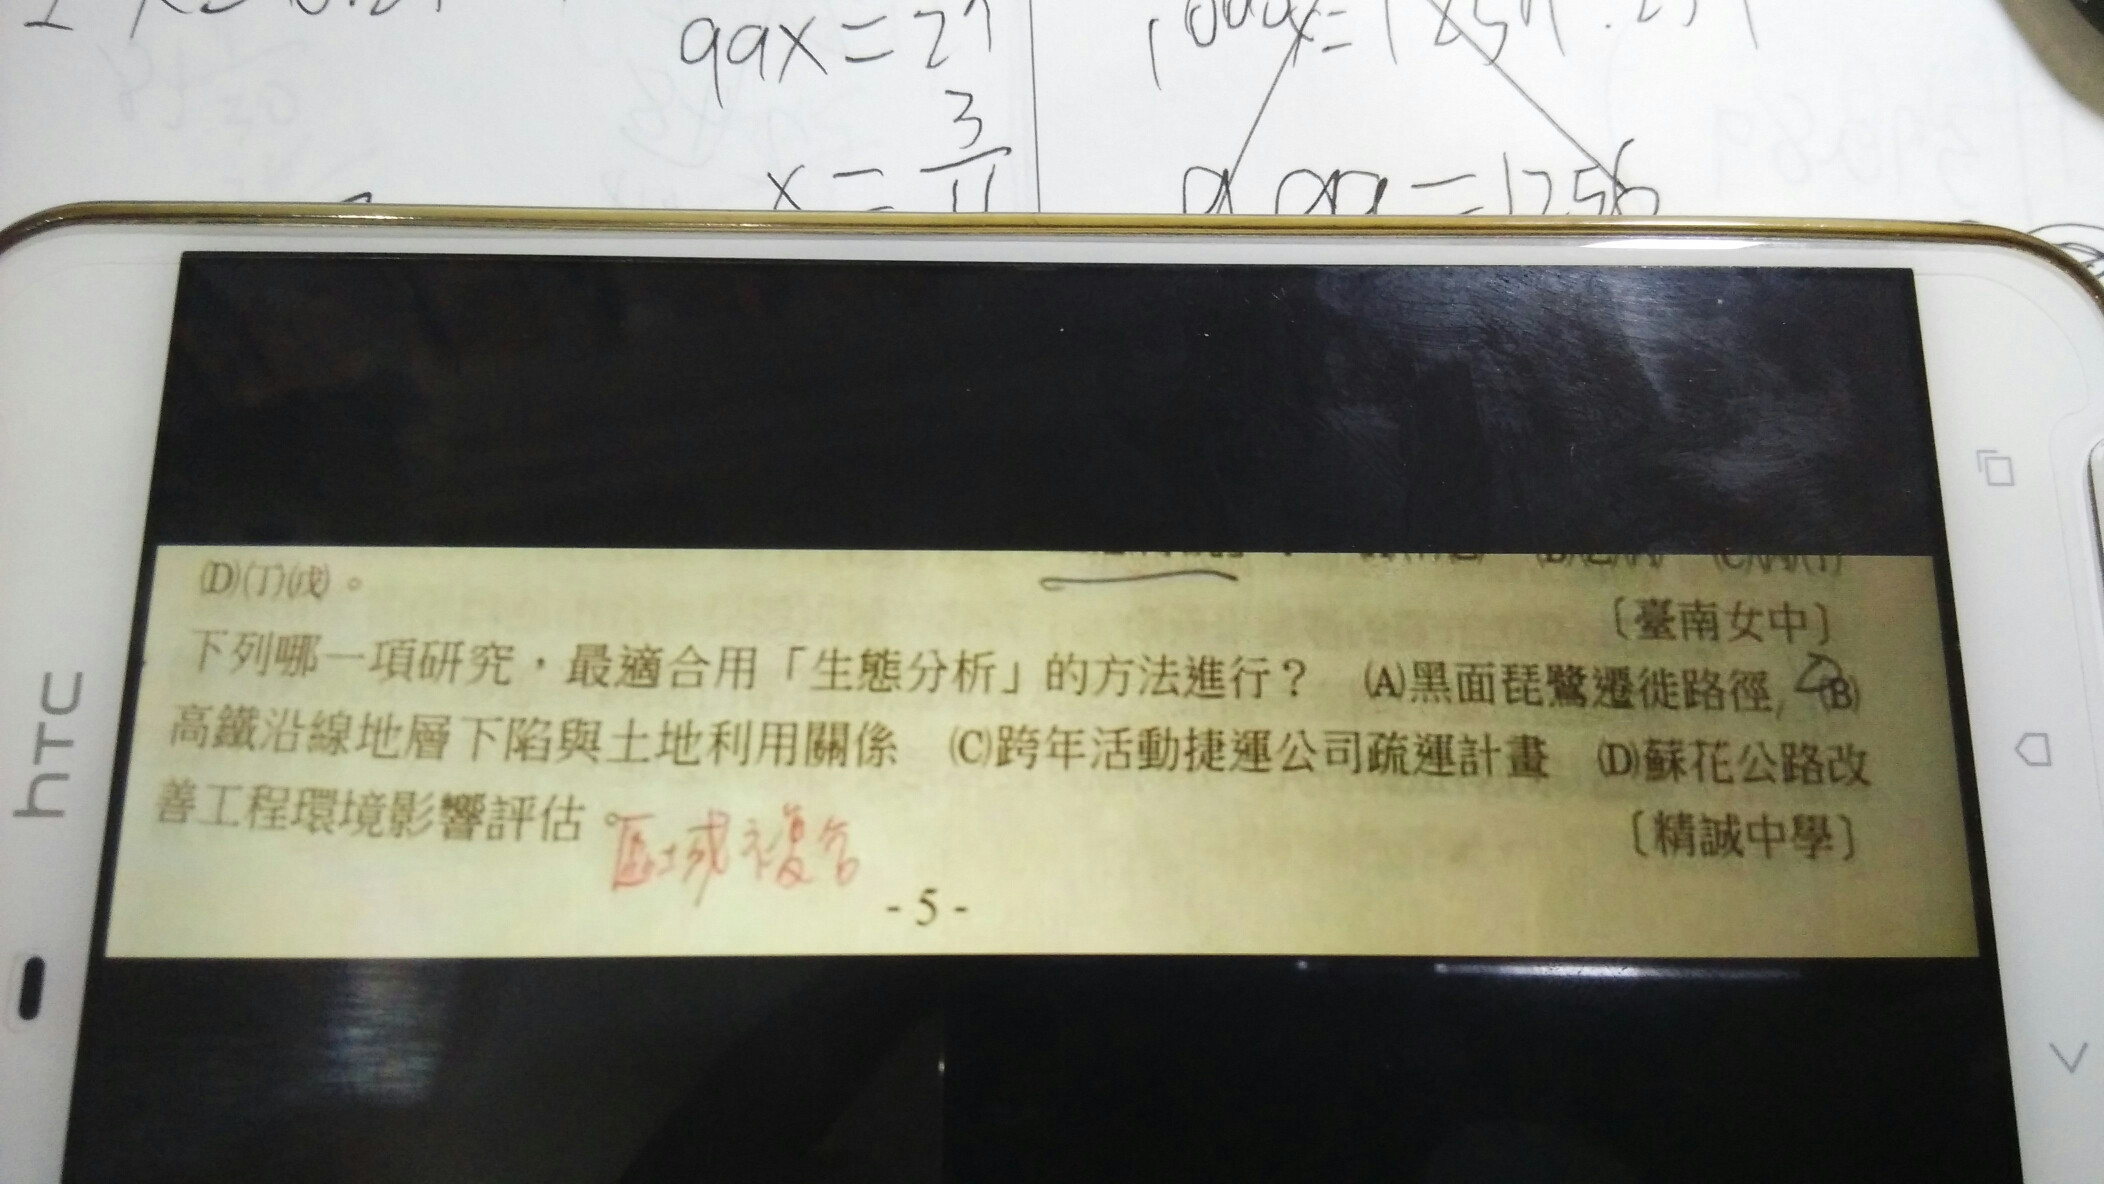 99x=27
x=3/11
htc
(D)(丁)(戊)。
〔臺南女中〕
下列哪一項研究,最適合用「生態分析」的方法進行? (A)黑面琵鷺遷徙路徑 (B)
高鐵沿線地層下陷與土地利用關係 (C)跨年活動捷運公司疏運計畫 (D)蘇花公路改
善工程環境影響評估。
〔精誠中學〕
區域複合
- 5 -